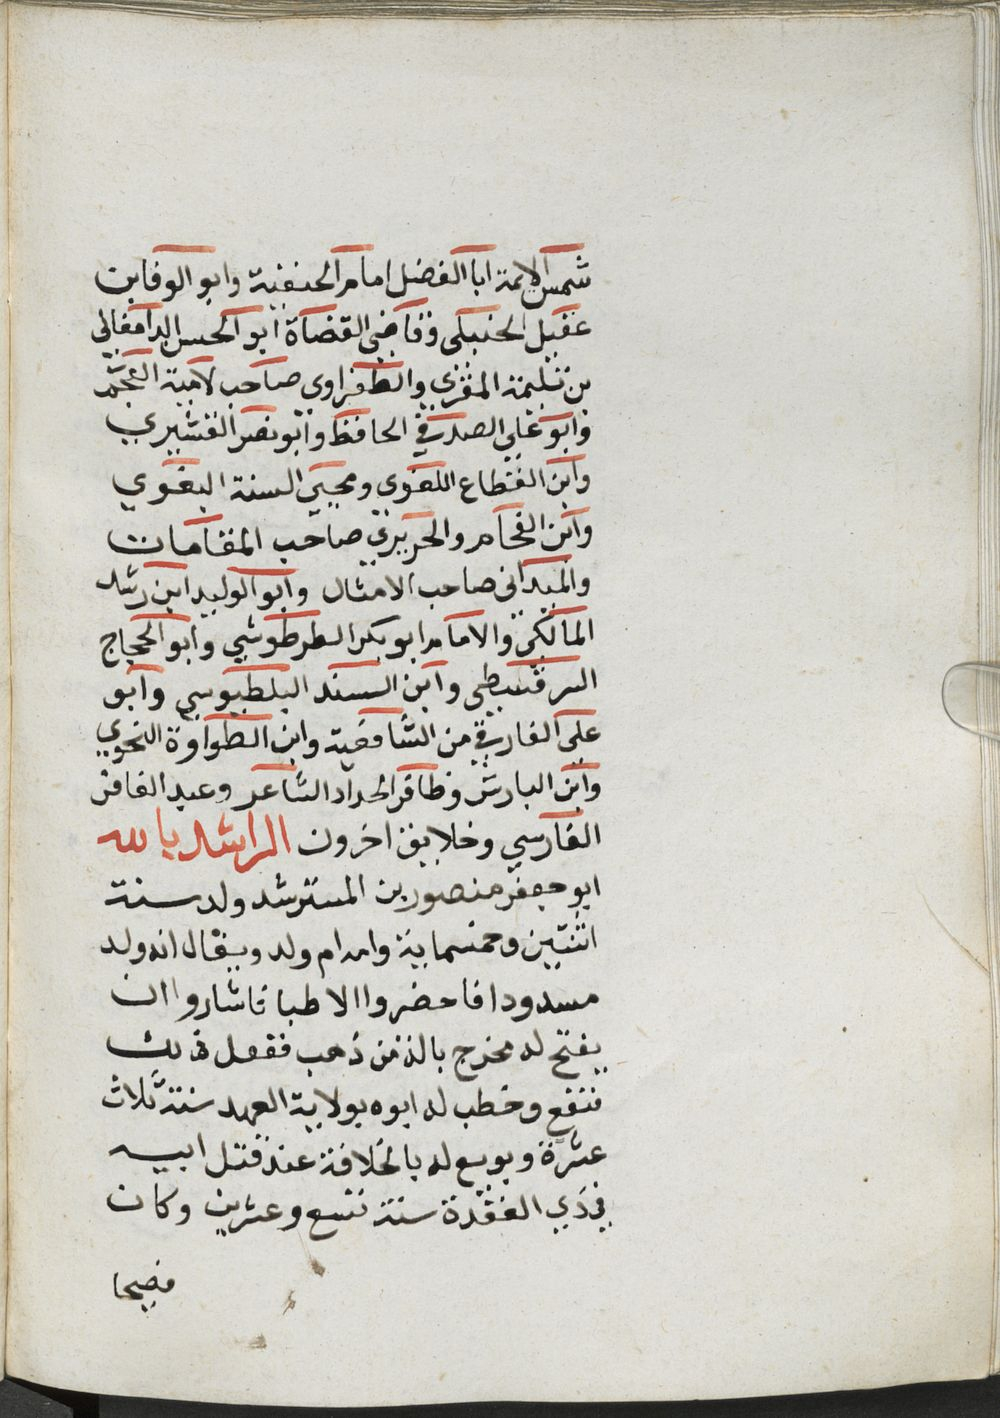 شمس الايمة ابا الفضل امام الحنفية وابو الوفا بن
عقيل الحنبلي وقاضي القضاة ابو الحسن الدامغاني
بن بليمة المقري والطغراوى صاحب لامية العجم
وابو علي الصدفي الحافظ وابو نصر القشيري
وابن القطاع اللغوى ومحيي السنة البغوي
وابن الفحام والحريري صاحب المقامات
والميداني صاحب الامثال وابو الوليد ابن رشد
المالكي والامام ابو بكر الطرطوشي وابو الحجاج
السرقسطي وابن السند البلطيوسي وابو
علي الفارقي من الشافعية وابن الطراوة النحوي
وابن البارش وظافر الحداد الشاعر وعبد الغافر
الفارسي وخلايق اخرون الراشد بالله
ابو جعفر منصور بن المسترشد ولد سنة
اثنتين وخمسماية وامه ام ولد ويقال انه ولد
مسدودا فاحضروا الاطبا فاشاروا ان
يفتح له مخرج بالة من ذهب ففعل ذلك
فنفع وخطب له ابوه بولاية العهد سنة ثلاث
عشرة وبويع له بالخلافة عند قتل ابيه
في ذي القعدة سنة تسع وعشرين وكان
فصيحا